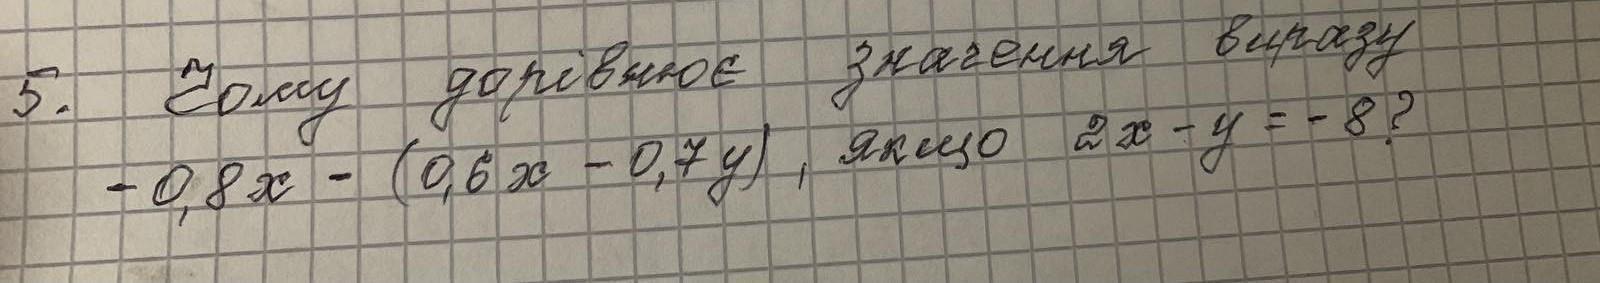 5. Чому дорівнює значення виразу
-0,8x - (0,6x - 0,7y), якщо 2x - y = -8?